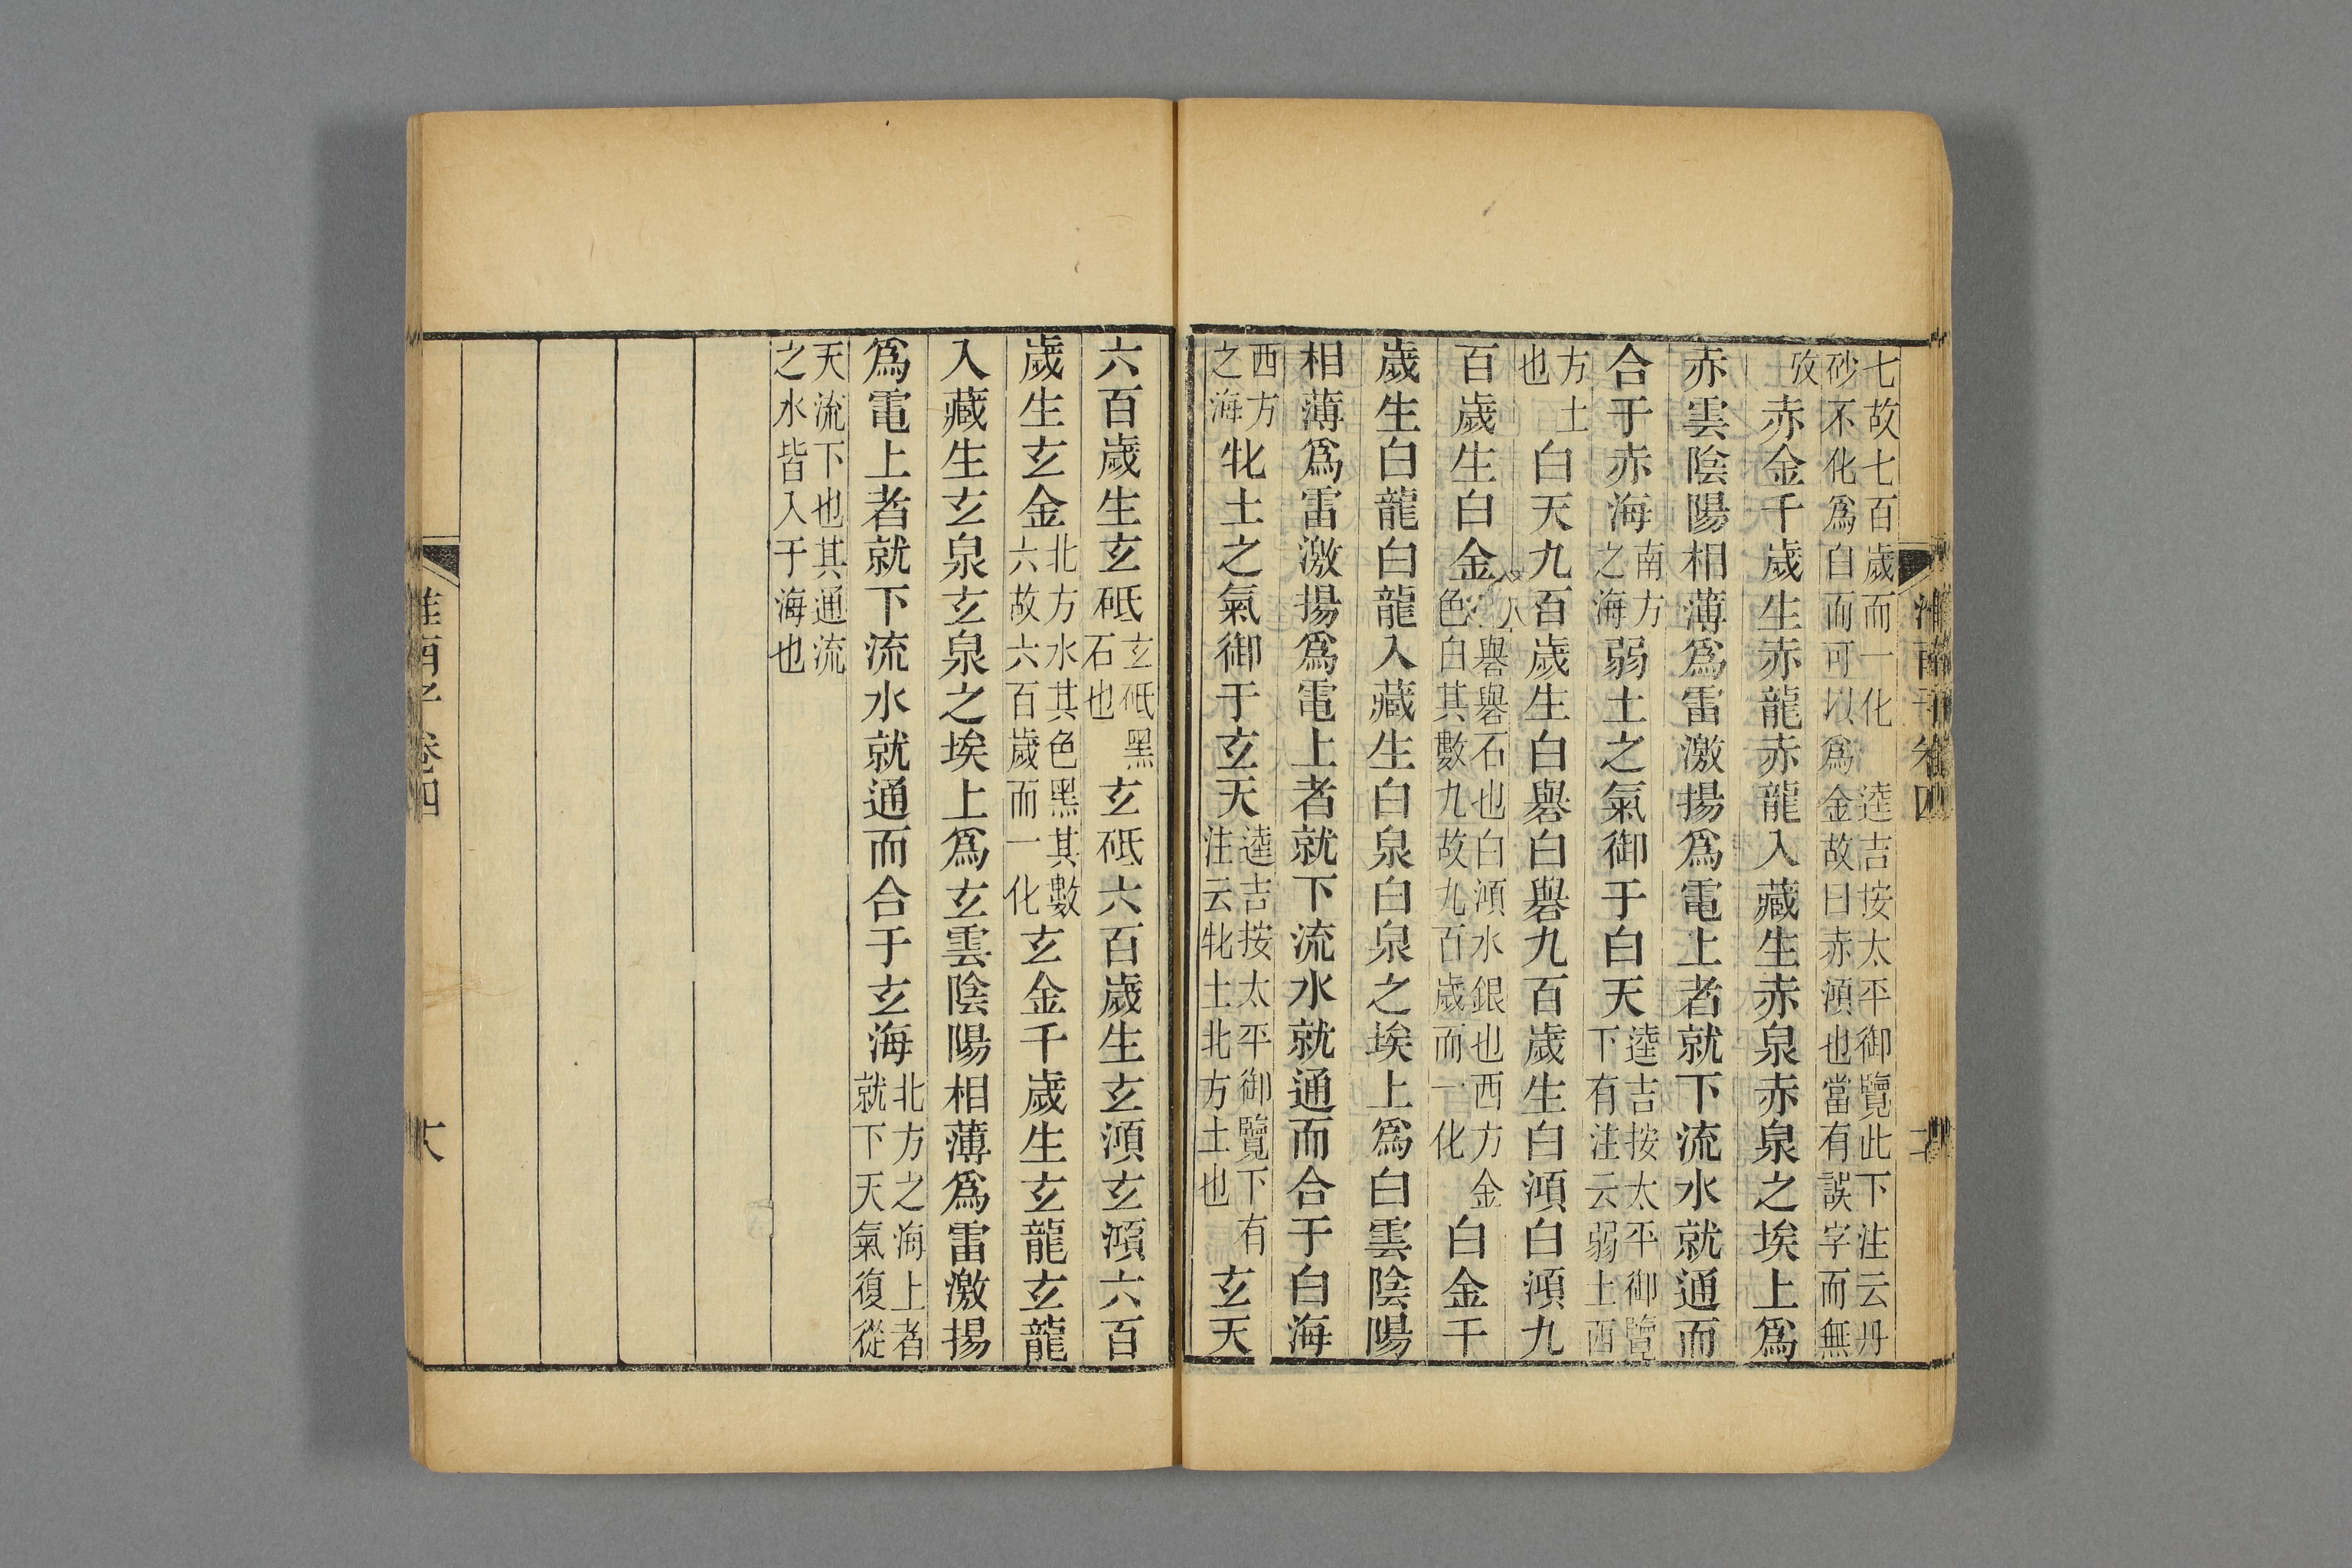 七故七百歲而一化 逵吉按太平御覽此下注云丹
砂不化爲自而可以爲金故曰赤澒也當有誤字而無
攷赤金千歲生赤龍赤龍入藏生赤泉赤泉之埃上爲
赤雲陰陽相薄爲雷激揚爲電上者就下流水就通而
合于赤海南方之海弱土之氣御于白天逵吉按太平御覽下有注云弱土西
方土也白天九百歲生白礜白礜九百歲生白澒白澒九
百歲生白金礜礜石也白澒水銀也西方金色白其數九故九百歲而一化白金千
歲生白龍白龍入藏生白泉白泉之埃上爲白雲陰陽
相薄爲雷激揚爲電上者就下流水就通而合于白海
西方之海牝土之氣御于玄天逵吉按太平御覽下有注云牝土北方土也玄天
六百歲生玄砥玄砥黑石也玄砥六百歲生玄澒玄澒六百
歲生玄金北方水其色黑其數六故六百歲而一化玄金千歲生玄龍玄龍
入藏生玄泉玄泉之埃上爲玄雲陰陽相薄爲雷激揚
爲電上者就下流水就通而合于玄海北方之海上者就下天氣復從
天流下也其通流之水皆入于海也
淮南子卷四